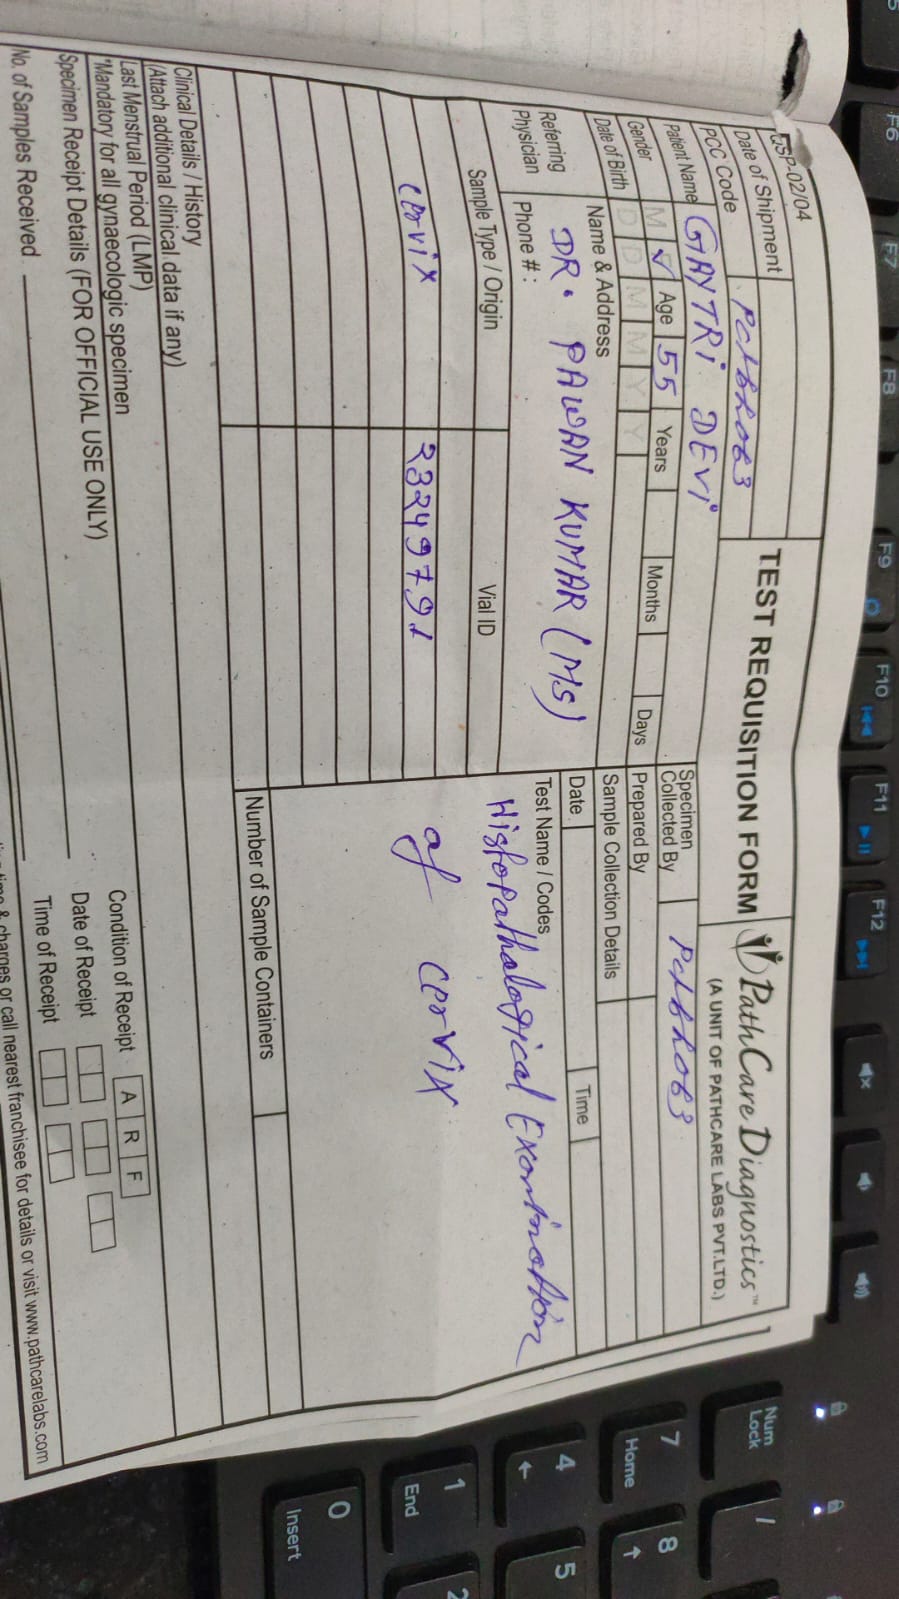 GSP-02/04
Date of Shipment
TEST REQUISITION FORM
PathCare Diagnostics™
(A UNIT OF PATHCARE LABS PVT.LTD.)
PCC Code
Patient Name GAYTRi DEVi
Specimen Collected By
Gender M ✓ Age 55 Years Months Days
Prepared By
Date of Birth D D M M Y Y
Sample Collection Details
Referring Physician
Name & Address
DR. PAWAN KUMAR (MS)
Phone # :
Date Time
Sample Type / Origin Vial ID
Test Name / Codes
Histopathalogical Examination
of cervix
cervix 23249791
Number of Sample Containers
Clinical Details / History
(Attach additional clinical data if any)
Last Menstrual Period (LMP)
*Mandatory for all gynaecologic specimen
Specimen Receipt Details (FOR OFFICIAL USE ONLY)
No. of Samples Received
Condition of Receipt A R F
Date of Receipt
Time of Receipt
& charges or call nearest franchisee for details or visit www.pathcarelabs.com
F6
F7
F8
F9
F10
F11
F12
Num Lock
/
7 Home
8
4
5
1 End
2
0 Insert